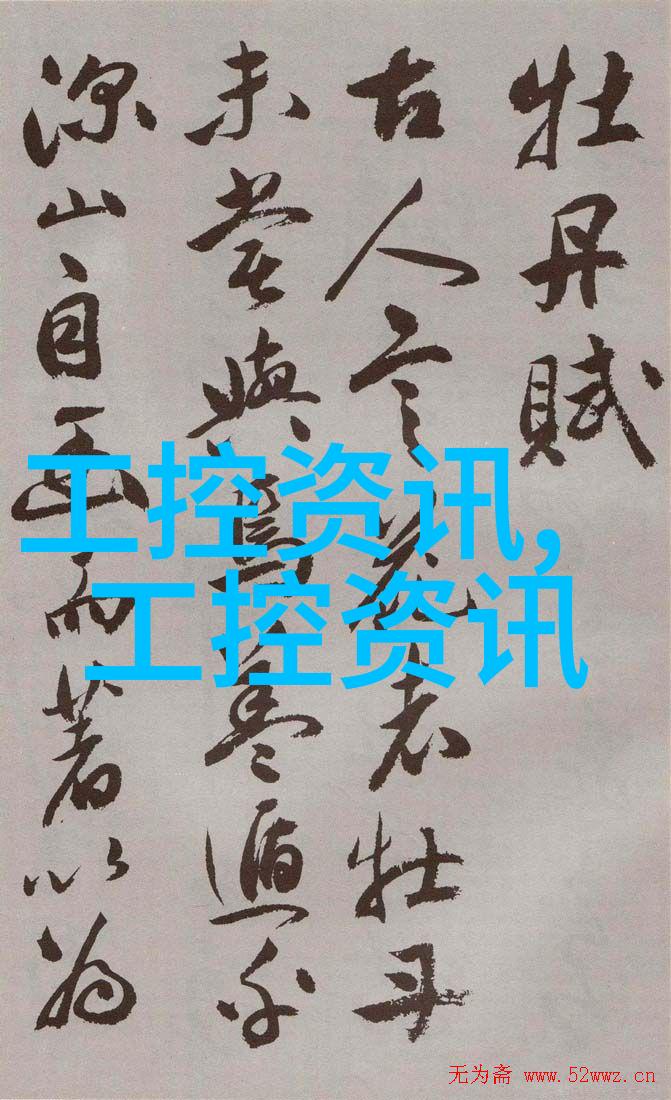 牡丹賦
古人言花者牡丹
未嘗與焉蓋遁乎
深山自幽而著以為
工控资讯,
工控资讯
无为斋 www.52wwz.cn